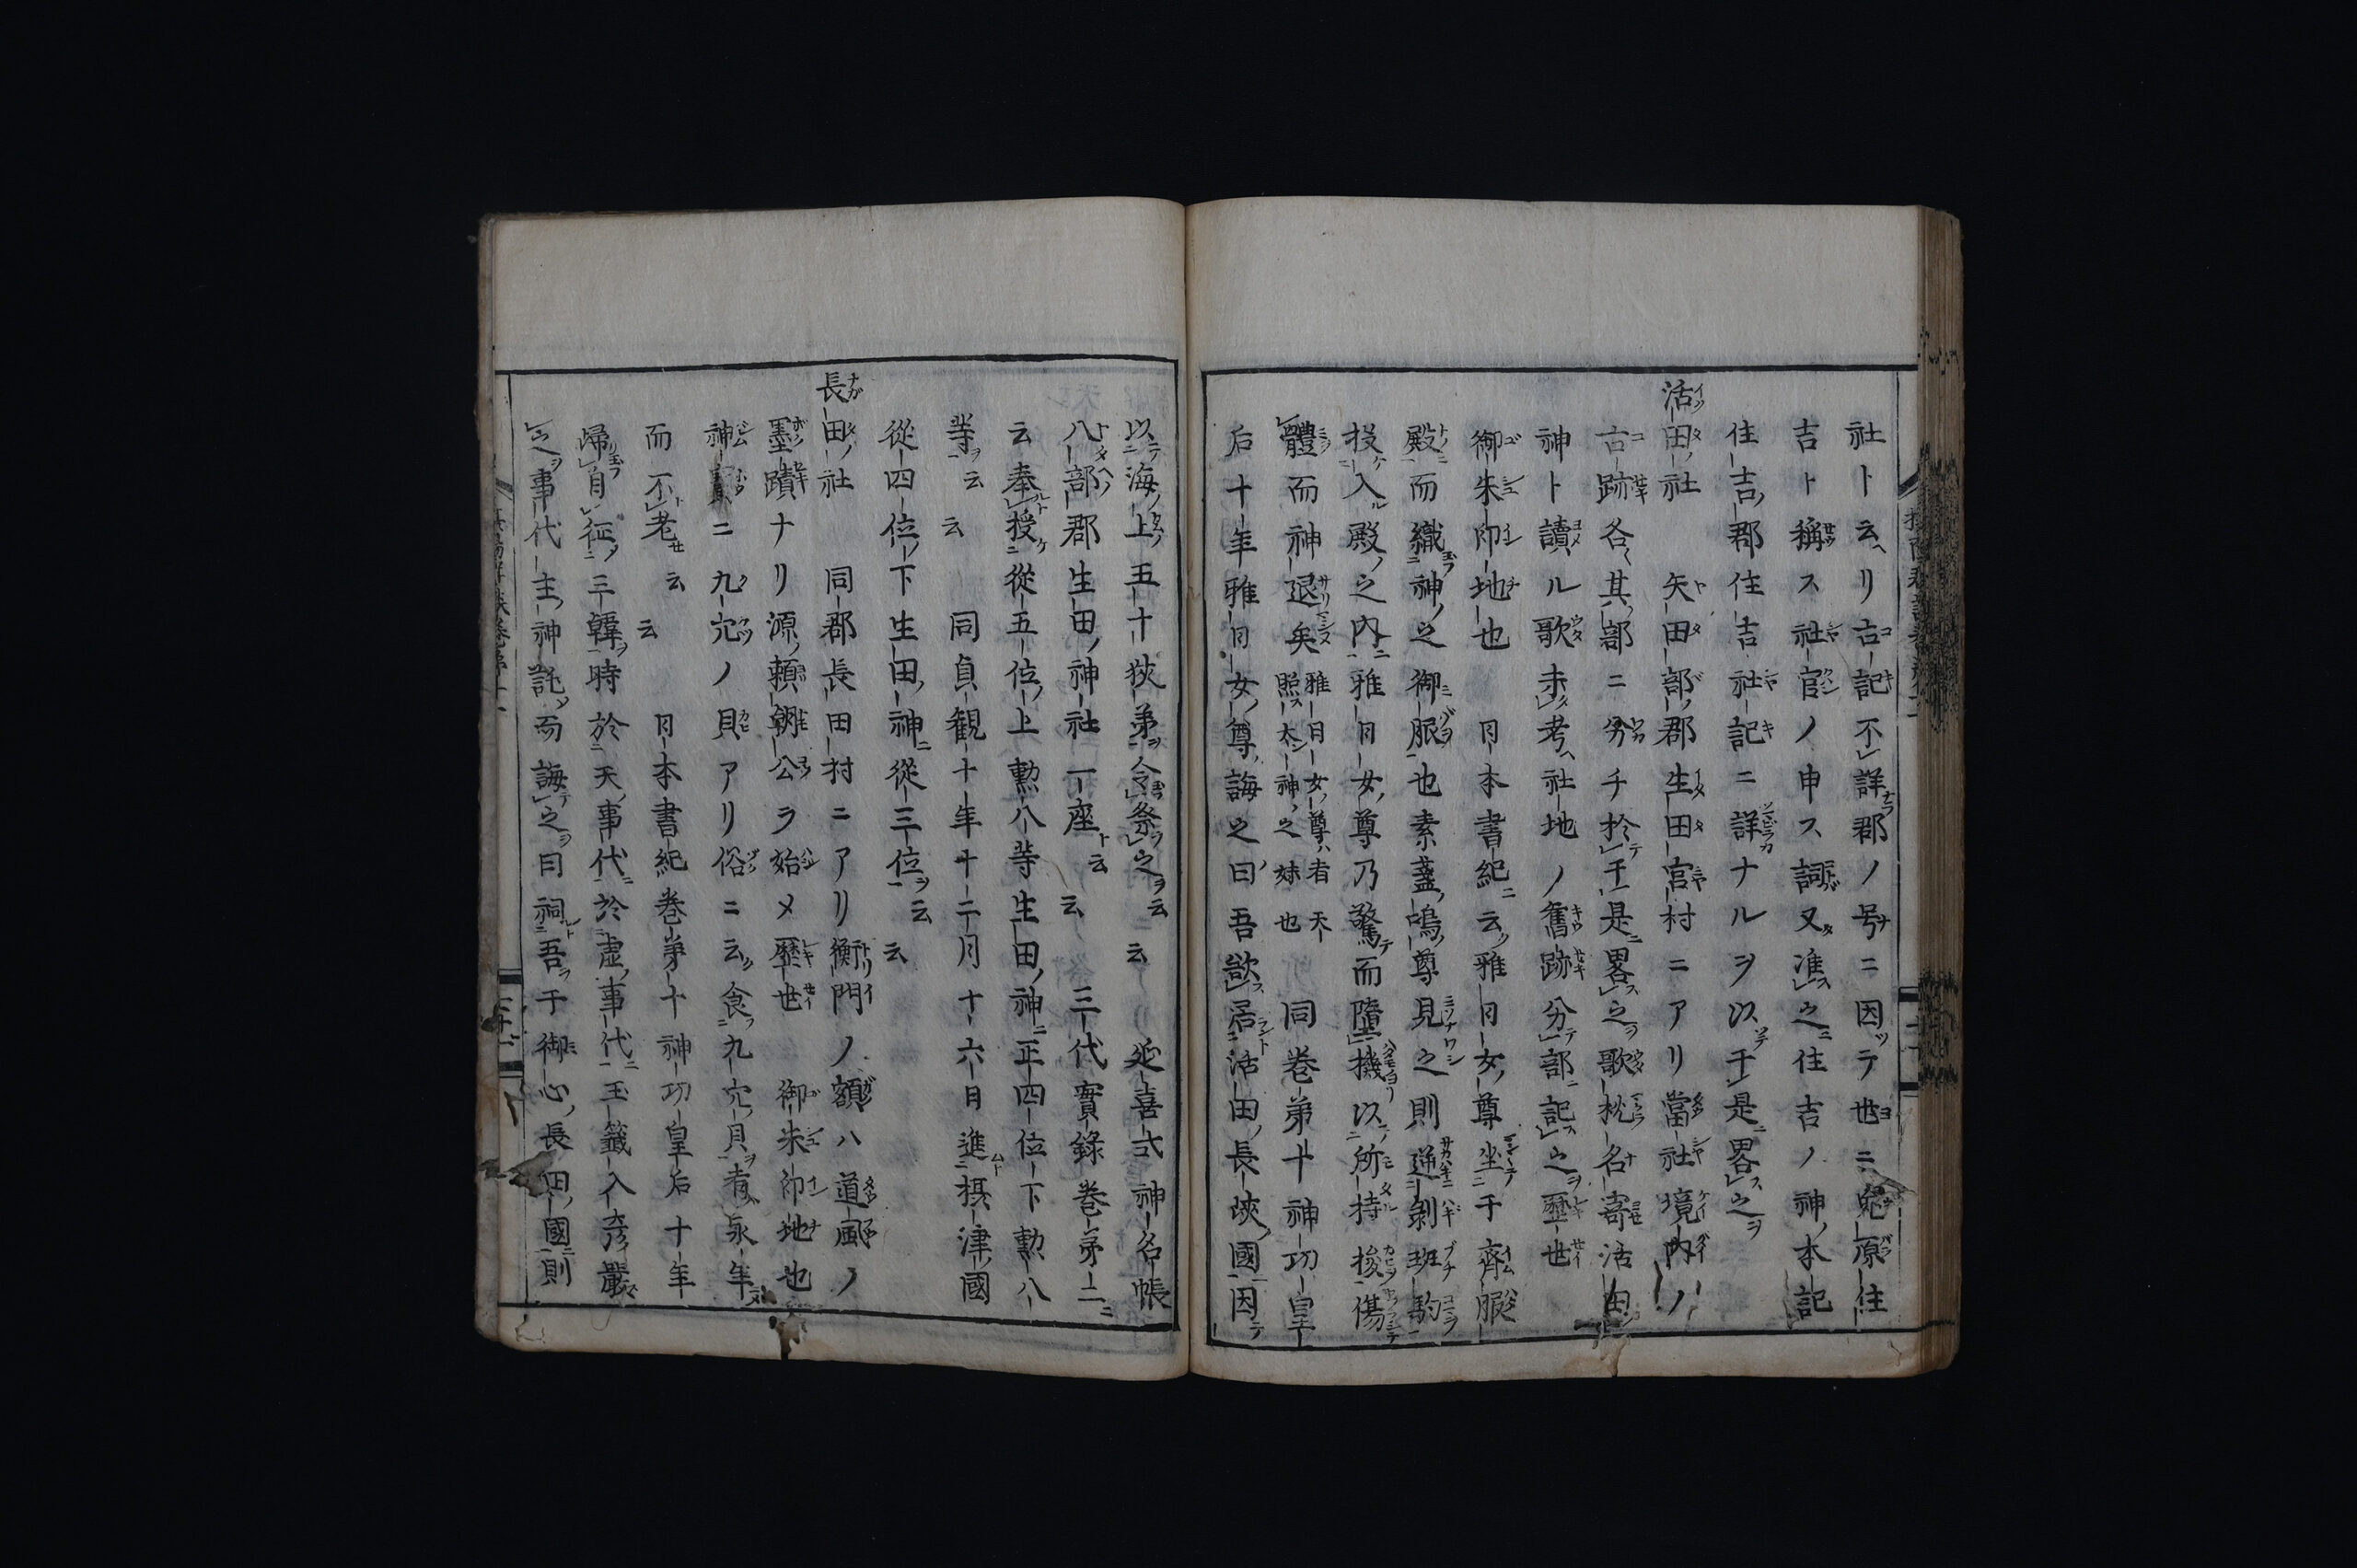 社ト云ヘリ古記不詳郡ノ号ニ因テ也ニ兎原住
吉ト稱ス社官ノ申ス詞又准之住吉ノ神ノ本記
住吉郡住吉社記ニ詳ナルヲ以テ于是畧之
活田社 矢田部郡生田宮村ニアリ當社境内ノ
古跡各其部ニ分チ於于是畧之歌枕名寄活田
神ト讀ル歌未考社地ノ舊跡分部記之歷世
御朱印地也 日本書紀云雅日女尊坐于齊服
殿而織神之御服也素盞嗚尊見之則逆剝班駒
投入殿之内雅日女尊乃驚而墮機以所持梭傷
體而神退矣雅日女尊者天照太神之妹也 同卷第十神功皇
后十年雅日女尊誨之曰吾欲居活田長峽國因
以海上五十狹茅令祭之云云 延喜式神名帳
八部郡生田神社一座云云 三代實錄卷第二
云奉授從五位上勲八等生田神正四位下勲八
等云云 同貞観十年十二月十六日進摂津國
從四位下生田神從三位云云
長田社 同郡長田村ニアリ衡門ノ額ハ道風ノ
墨蹟ナリ源頼朝公ヲ始メ歷世 御朱印地也
神寳ニ九穴ノ貝アリ俗ニ云食九穴貝者永年
而不老云云 日本書紀卷第十神功皇后十年
歸自征三韓時於天事代於虛事代玉籤入彥嚴
之事代主神託而誨之曰祠吾于御心長田國則